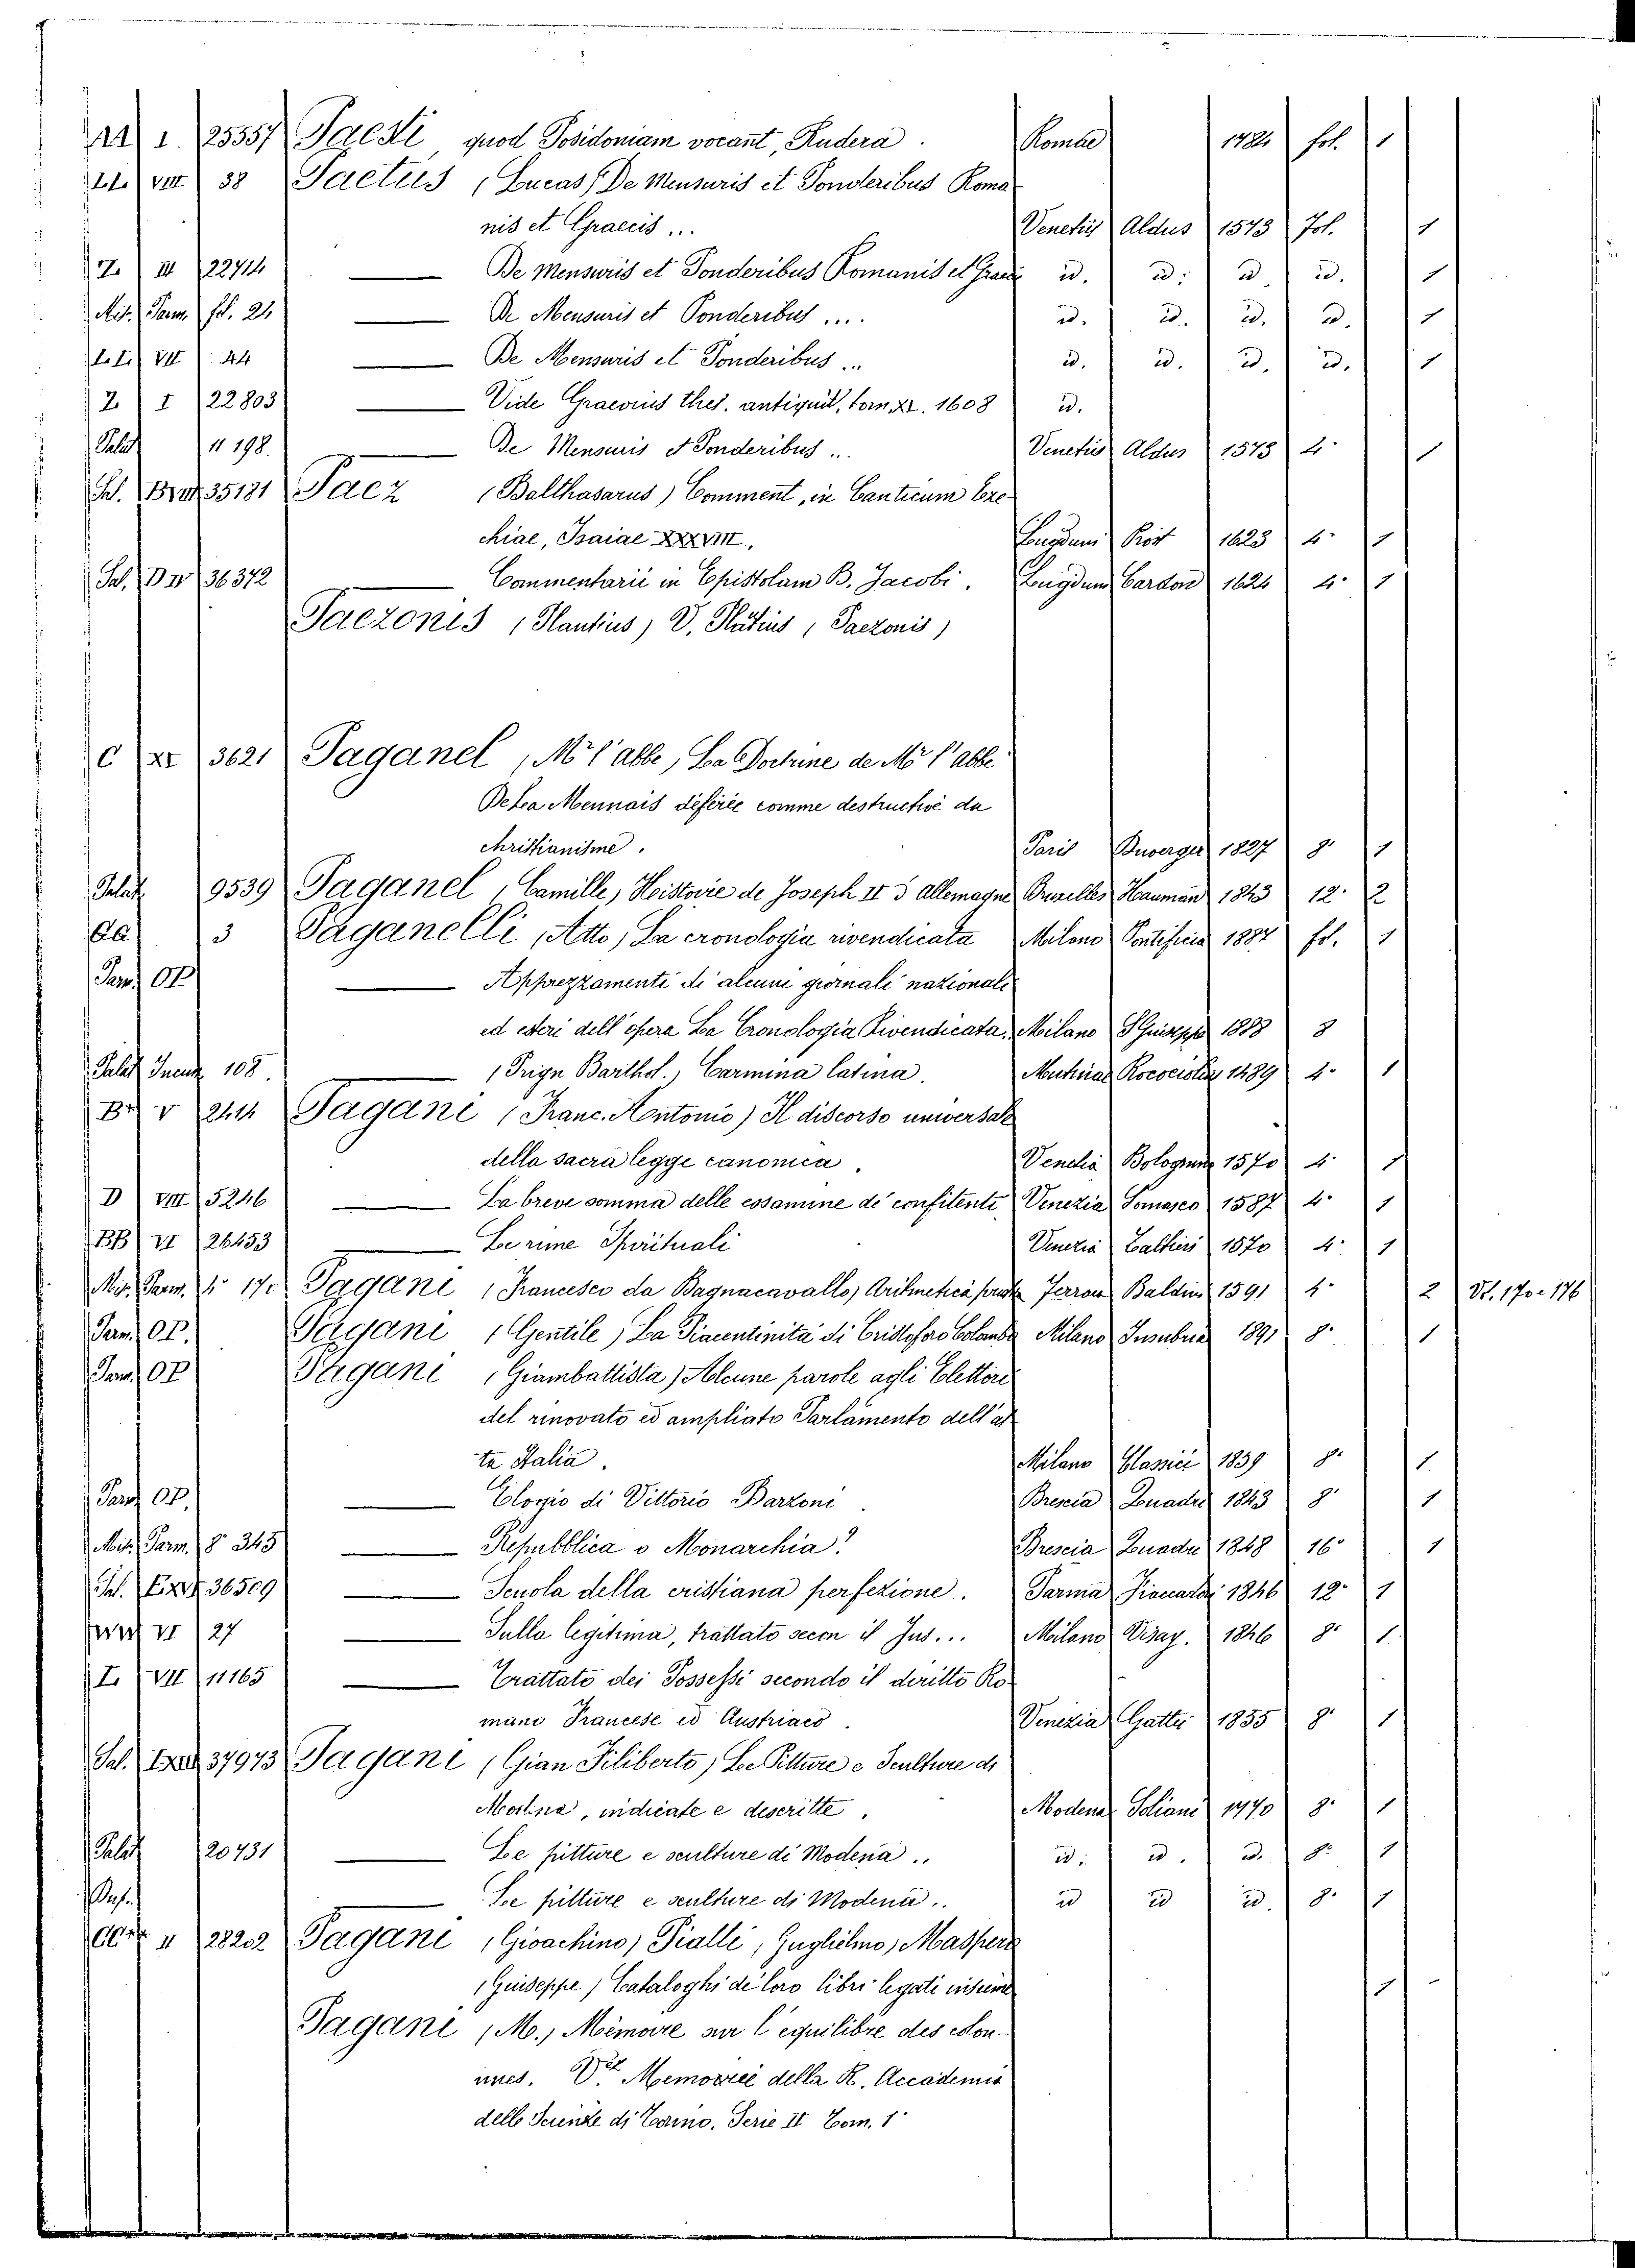 AA I. 25557 Paesti, quod Posidoniam vocant, Rudera. Romae 1784 fol. 1
LL VIII 38 Paetus (Lucas) De Mensuris et Ponderibus Roma
nis et Graecis... Venetiis Aldus 1573 Fol. 1
Z. III 22714 —— De Mensuris et Ponderibus Romanis et Graeci id. id. id. id. 1
Mis. Parm. fol. 21 —— De Mensuris et Ponderibus .... id. id. id. id. 1
L. L. VII 44 —— De Mensuris et Ponderibus... id. id. id. id. 1
Z. I 22803 —— Vide Graevius thes. antiquit, tom XI. 1608 id.
Palat 11198. —— De Mensuris et Ponderibus... Venetiis Aldus 1573 4° 1
Sal. 35181 Paez (Balthasarus) Comment, in Canticum Eze
chiae, Isaiae XXXVIII, Lugduni Rost 1623 4° 1
Sal. D 36372 —— Commentarii in Epistolam B. Jacobi. Lugduni Cardon 1624 4° 1
Paezonis (Plautius) V. Plutius (Paezonis)
C XI 3621 Paganel, Mr l'abbe, La Doctrine de Mr l'abbe
De La Mennais déférée comme destructive du
christianisme. Paris Duverger 1827 8° 1
Palat. 9539 Paganel (Camille) Histoire de Joseph II d'Allemagne Bruxelles Hauman 1843 12° 2
3 Paganelli (Atto) La cronologia rivendicata Milano Pontificia 1887 fol. 1
Parm. OP —— Apprezzamenti di alcuni giornali nazionali
ed esteri dell'opera La Cronologia Rivendicata. Milano S Giuseppe 1888 8
Palat. Incun. 108. —— (Prign Barthol.) Carmina latina. Mutinae Rococciolus 1489 4° 1
V 244 Pagani (Franc. Antonio) Il discorso universale
della sacra legge canonica. Venetia Bolognino 1570 4° 1
D VIII 5246 —— La breve somma delle essamine de' confitenti Venezia Somasco 1587 4° 1
BB VI 26453 —— Le rime Spirituali Venezia Valthieri 1570 4° 1
Mis. Parm. 4° 170 Pagani (Francesco da Bagnacavallo) Aritmetica Ferrara Baldini 1591 4° 2 Vol. 170 e 176
Parm. OP. Pagani (Gentile) La Piacentinità di Cristoforo Colombo Milano Insubria 1891 8° 1
Parm. OP Pagani (Giambattista) Alcune parole agli Elettori
del rinovato ed ampliato Parlamento dell'al
ta Italia. Milano Classici 1839 8° 1
Parm. OP. —— Elogio di Vittorio Barzoni Brescia Quadri 1843 8° 1
Mis. Parm. 8° 345 —— Repubblica o Monarchia? Brescia Quadri 1848 16° 1
Sal. 36509 —— Scuola della cristiana perfezione. Parma Fiaccadori 1846 12° 1
VI 27 —— Sulla legitima, trattato secon il Jus... Milano Visay. 1846 8° 1
I. VII 11165 —— Trattato dei Possessi secondo il deritto Ro
mano Francese ed Austriaco. Venezia Gattei 1835 8° 1
Sal. 37973 Pagani (Gian Filiberto) Le Pitture e Sculture di
Modena, indicate e descritte. Modena Soliani 1770 8° 1
Palat 20731 —— Le pitture e sculture di Modena.. id. id. id. 8° 1
—— Le pitture e sculture di Modena.. id id id. 8° 1
II 28202 Pagani (Gioachino) Pialli, (Guglielmo) Maspero
(Guiseppe) Cataloghi de' loro libri legati insieme 1
Pagani (M.) Mémoire sur l'equilibre des colon-
nes. Vt Memoriee della R. Accademia
delle Scienze di Torino. Serie II Tom. 1°